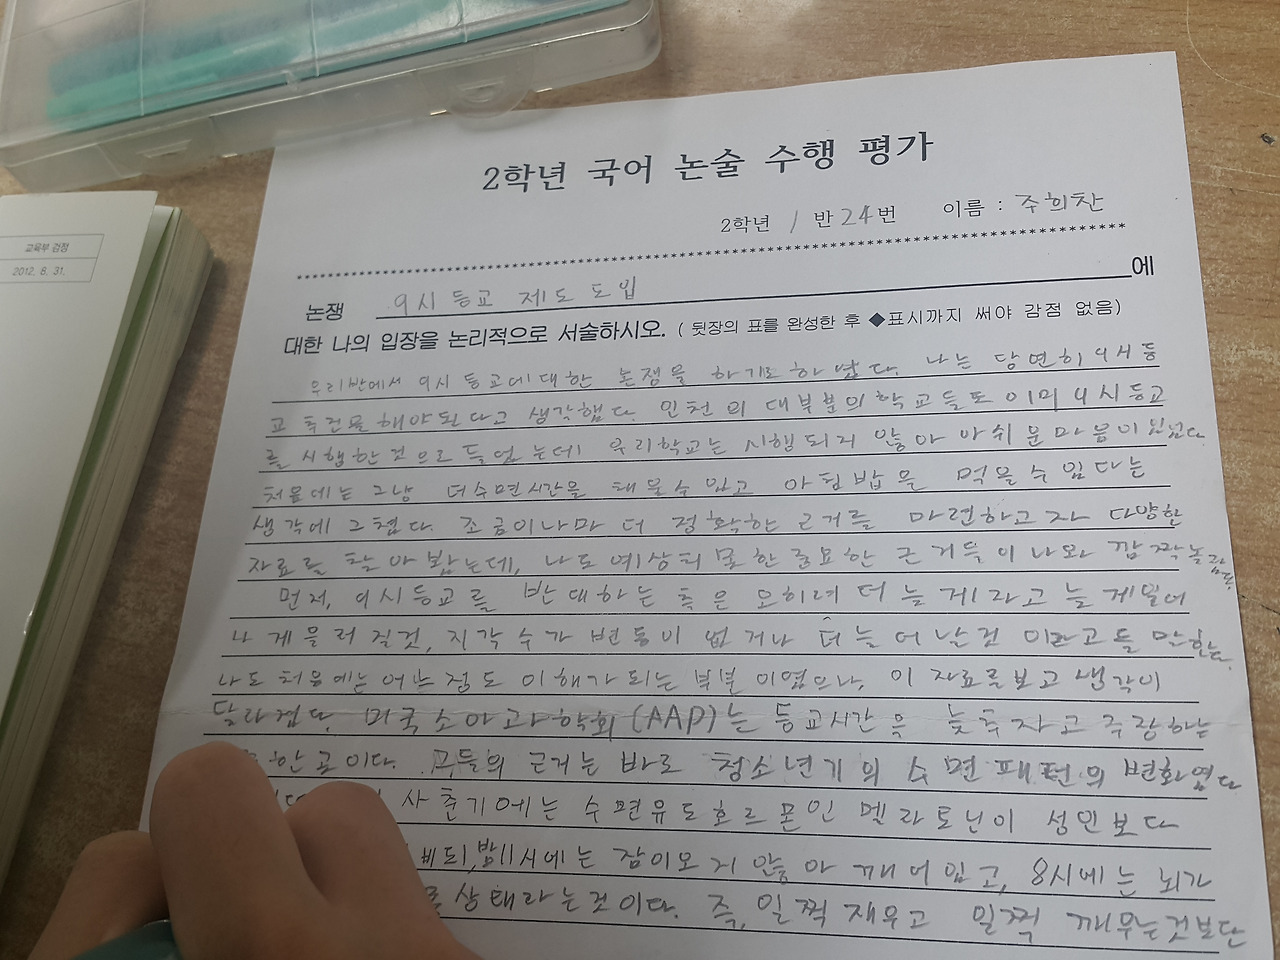 교육부 검정
2012. 8. 31.
2학년 국어 논술 수행 평가
2학년 1 반 24번 이름 : 주희찬
논쟁 9시 등교 제도 도입 에
대한 나의 입장을 논리적으로 서술하시오. ( 뒷장의 표를 완성한 후 ◆표시까지 써야 감점 없음)
우리반에서 9시 등교에대한 논쟁을 하기로 하였다. 나는 당연히 9시등
교 추진을해야된다고 생각했다. 인천의 대부분의학교들도 이미 9시등교
를 시행한것으로 들었는데 우리학교는 시행되지 않아 아쉬운마음이 있었다.
처음에는 그냥 더수면시간을 채울수있고 아침밥을 먹을수 있다는
생각에 그쳤다. 조금이나마 더 정확한 근거를 마련하고자 다양한
자료를 찾아봤는데, 나도 예상치 못한 중요한 근거들이 나와 깜짝놀랐다.
먼저, 9시등교를 반대하는 측은 오히려 더 늦게자고 늦게일어
나 게을러질것, 지각수가 변동이 없거나 더늘어날것 이라고들 말한다.
나도 처음에는 어느정도 이해가되는 부분이였으나, 이 자료를보고 생각이
달라졌다. 미국소아과학회(AAP)는 등교시간을 늦추자고 주장하는
한곳이다. 그들의 근거는 바로 청소년기의 수면패턴의 변화였다
사춘기에는 수면유도호르몬인 멜라토닌이 성인보다
비되,밤11시에는 잠이오지않아 깨어있고, 8시에는 뇌가
상태라는것이다. 즉, 일찍재우고 일찍 깨우는것보단